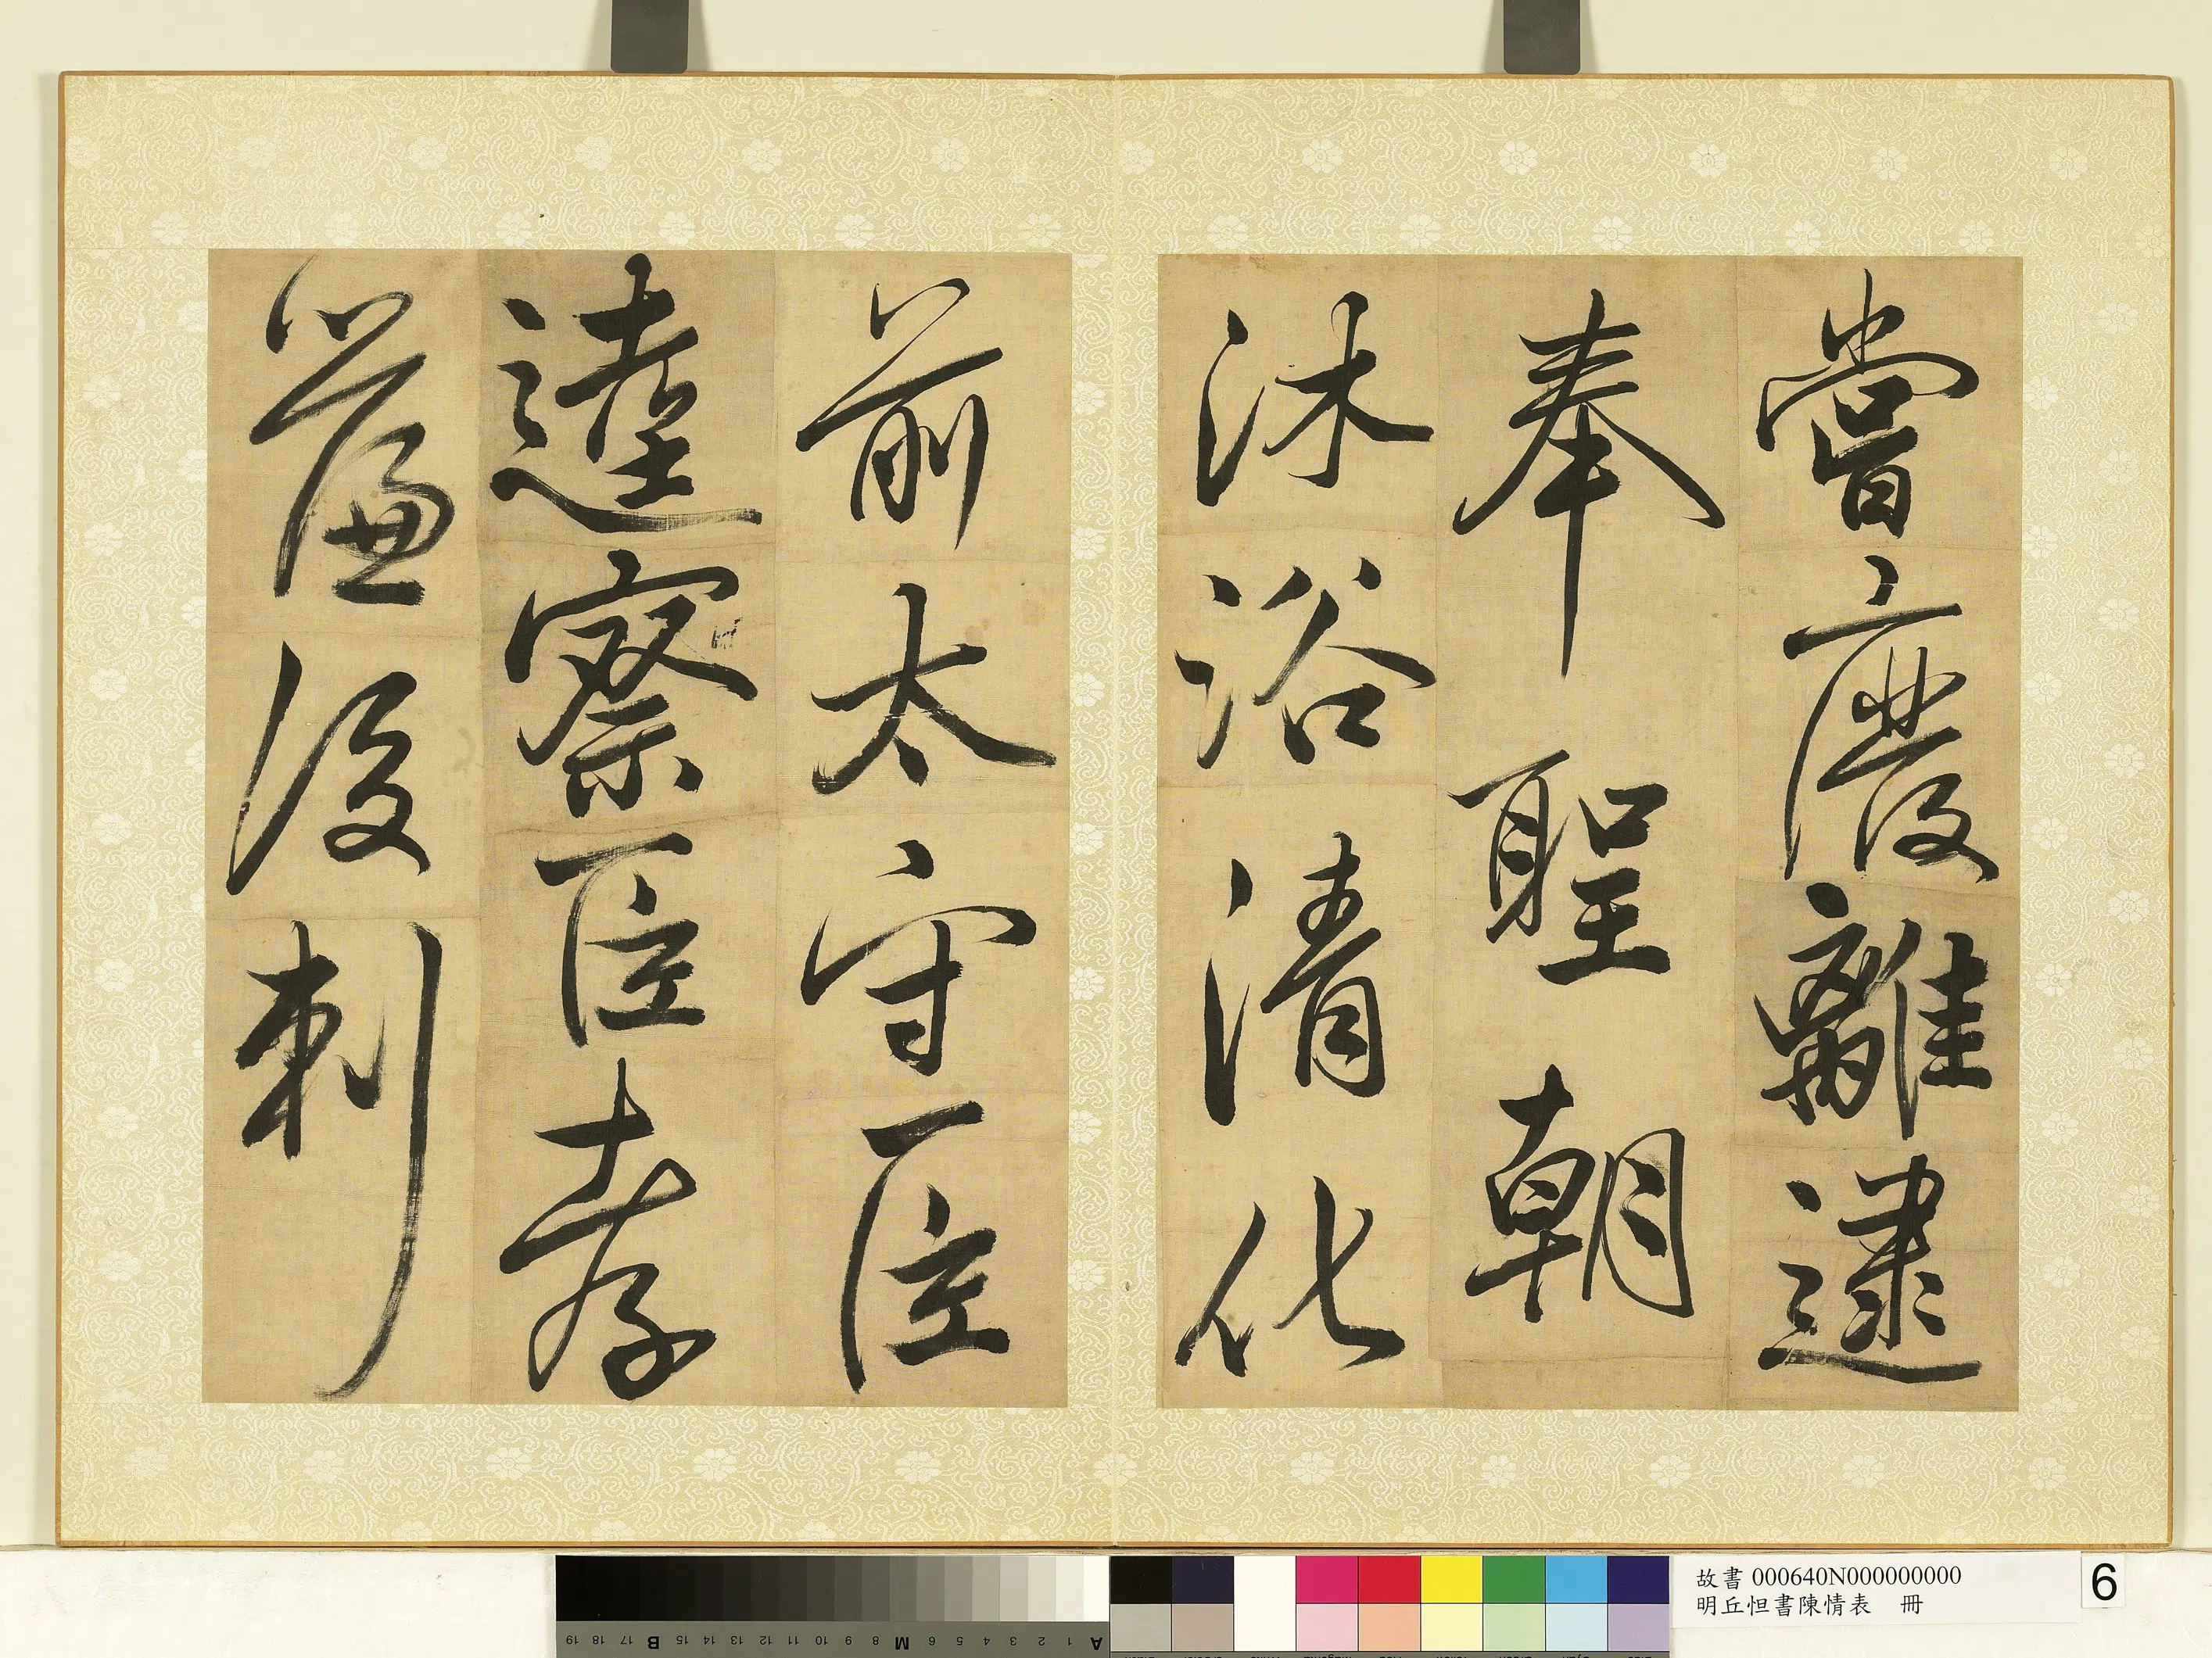 嘗廢離逮
奉聖朝
沐浴清化
前太守臣
逵察臣孝
廉後刺
故書 000640N000000000
明丘怛書陳情表 冊
6
A 1 2 3 4 5 6 M 8 9 10 11 12 13 14 15 B 17 18 19